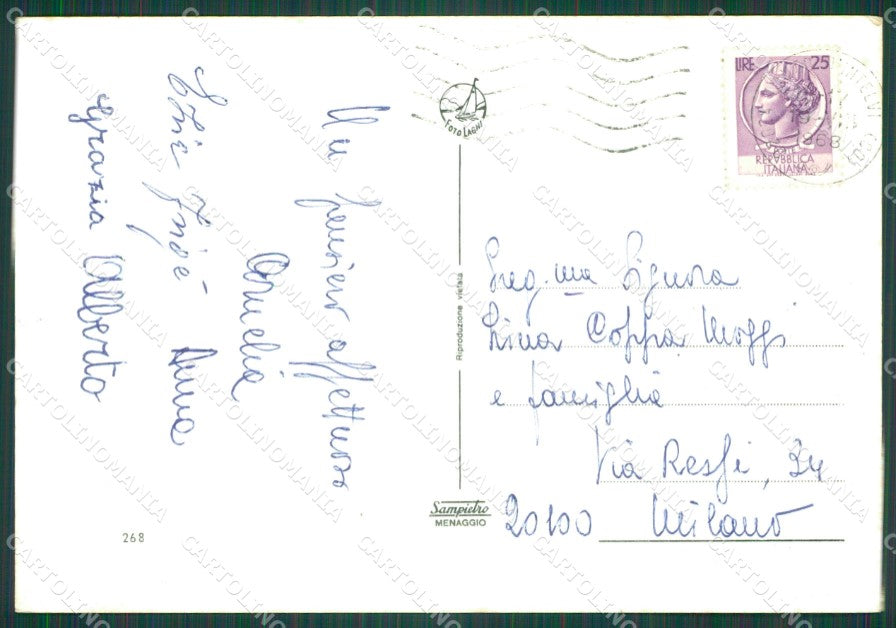 Un pensiero affettuoso
Cornelia
Anna
Grazia Alberto
FOTO LAGHI
Riproduzione vietata
Sampietro
MENAGGIO
268
LIRE 25
REPUBBLICA
ITALIANA
1968
Signora
Lina Coppa Moggi
e famiglia
Via 34
20100 Milano
CARTOLINOMANIA